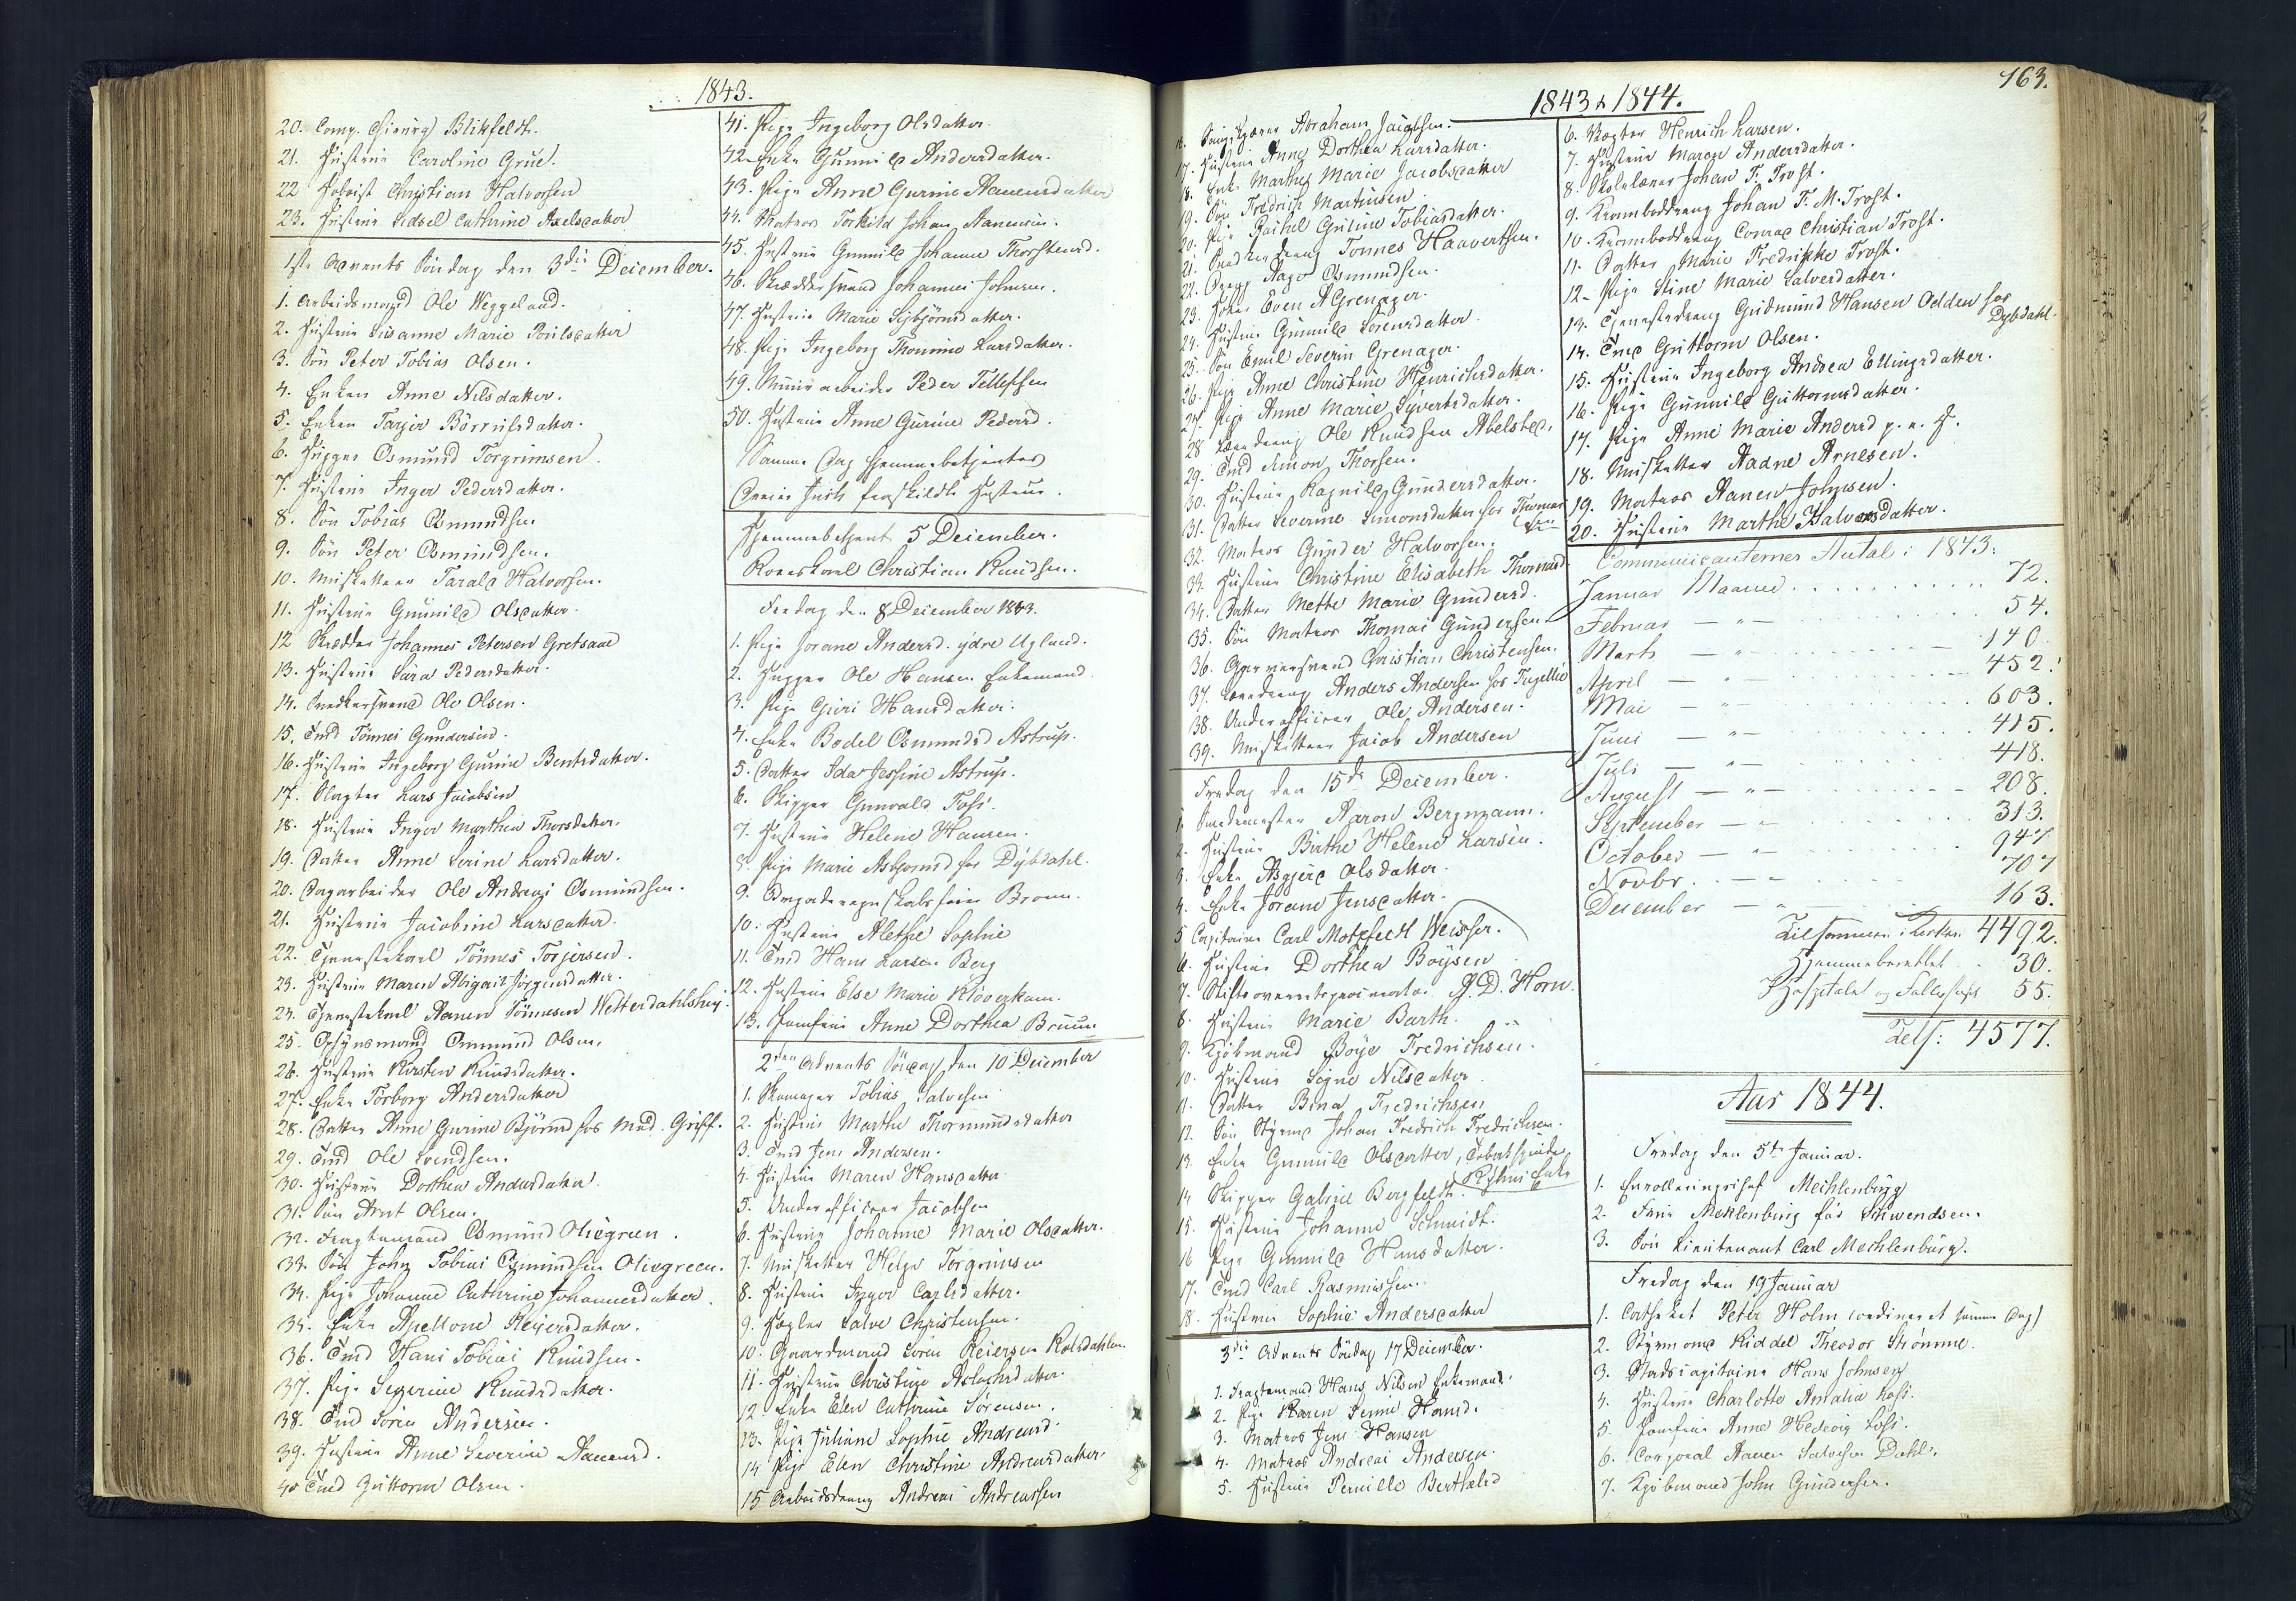 1843.
20. Comp. Chirurg Blikfeldt.
21. Hustrue Caroline Grue.
22 Hoboist Christian Halvorsen
23. Hustrue Sidsel Cathrine Axelsdatter
1ste Advents Søndag den 3die December.
1. Arbeidsmand Ole Weggeland.
2. Hustrue Susanne Marie Poulsdatter
3. Søn Peter Tobias Olsen.
4. Enken Anne Nilsdatter.
5. Enken Tarjer
6. Osmund Torgrimsen.
7. Hustrue Inger Pedersdatter.
8. Søn Tobias Osmundsen
9. Søn Peter Osmundsen.
10. Musketteer Tarald Halvorsen.
11. Hustrue Gunnild Olsdatter.
12 Skrædder Johannes Petersen Gretsaae
13. Hustrue Sara Pedersdatter.
14. Snedkersvend Ole Olsen.
15. Tmd Tönnes Gundersen.
16. Hustrue Ingeborg Gurine Bentsdatter.
17. Slagter Lars Jacobsen
18. Hustrue Inger Marthea Thorsdatter.
19. Datter Anne Serine Larsdatter.
20. Dagarbeider Ole Andreas Osmundsen.
21. Hustrue Jacobine Larsdatter.
22. Tjenestekarl Tönnes Torjersen.
23. Hustrue Maren Abigail Jörgensdatter.
24. Tjenestekarl Aanen Tönnesen Wetterdahlshey.
25. Opsynsmand Ommund Olsen.
26. Hustrue Kirsten Knudsdatter.
27. Enke Torborg Andersdatter
28. Datter Anne Gurine Björnsd hos Mad. Griff.
29. Tmd Ole Svendsen.
30. Hustrue Dorthea Andersdatter.
31. Søn Arnt Olsen.
32. Fragtemand Osmund Oliegreen.
33. Søn John Tobias Osmundsen Oliegreen.
34. Pige Johanne Cathrine Johannesdatter.
35. Enke Apellone Reiersdatter.
36. Tmd Hans Tobias Knudsen.
37. Pige Severine Knudsdatter.
38. Tmd Sören Andersen.
39. Hustrue Anne Severine Aanensd.
40 Tmd Guttorm Olsen.
41. Pige Ingeborg Olsdatter.
42. Enke Gunnild Andersdatter.
43. Pige Anne Gurine Aanensdatter
44. Matros Torkild Johan Aanensen.
45. Hustrue Gunnild Johanne Thorstensd.
46. Skrædder svend Johannes Johnsen.
47. Hustrue Marie Sigbjörnsdatter.
48. Pige Ingeborg Thomine Larsdatter.
49. Muurarbeider Peder Tellefsen
50. Hustrue Anne Gurine Pedersd.
Samme Dag hjemmebetjentes
fraskildte Hustrue.
Hjemmebetjent 5 December.
Christian Knudsen.
Fredag den 8 December 1843.
1. Pige Jorane Andersd. ydre Ugland.
2. Ole Hansen Enkemand
3. Pige Guri Hansdatter.
4. Enke Bodel Osmundsd Astrup.
5. Datter Ida Jessine Astrup.
6. Skipper Gunvald Foss.
7. Hustrue Helene Hansen.
8. Pige Marie Asbjornsd hos Dybdahl.
9. Bruun.
10. Hustrue Alethe Sophie
11. Tmd Hans Larsen Berg
12. Hustrue Else Marie Klöverkam.
13. Jomfrue Anne Dorthea Bruun
2den Advents Søndag den 10 December
1. Skomager Tobias Salvesen
2. Hustrue Marthe Thormundsdatter
3. Tmd Jens Andersen.
4. Hustrue Maren Hansdatter
5. Underofficeer Jacobsen
6. Hustrue Johanne Marie Olsdatter.
7. Musketteer Helge Torgrimsen
8. Hustrue Inger Carlsdatter.
9. Salve Christensen.
10. Gaardmand Sören Reiersen Kolsdahlen.
11. Hustrue Christine Aslachsdatter.
12. Enke Elen Cathrine Sörensen.
13. Pige Juliane Sophie Andreasd.
14 Pige Elen Christine Andreasdatter
15 Arbeidsdreng Andreas Andreassen
1843 & 1844.
163.
16. Abraham Jacobsen.
17. Hustrue Anne Dorthea Larsdatter.
18. Enke Marthe Marie Jacobsdatter
19. Søn Fredrich Martinsen
20. Pige Rachel Guline Tobiasdatter.
21. Snedkerdreng Tonnes Haavertsen.
22. Dreng Aage Osmundsen.
23. Even A Grenager.
24. Hustrue Gunnild Sörensdatter.
25. Søn Emil Severin Grenager.
26. Pige Anne Christine Henrichsdatter.
27. Pige Anne Marie Syvertsdatter.
28 Læredreng Ole Knudsen Abelsted.
29. Tmd Simon Thorsen.
30. Hustrue Ragnild Gundersdatter.
31. Datter Severine Simonsdatter hos Thomas
32. Matros Gunder Halvorsen.
33. Hustrue Christine Elisabeth Thomasd
34. Datter Mette Marie Gundersd.
35. Søn Matros Thomas Gundersen.
36. Garversvend Christian Christensen.
37. Læredreng Anders Andersen hos Tugellie
38. Underofficeer Ole Andersen.
39. Musketteer Jacob Andersen
Fredag den 15de December.
1. Smedemester Aaron Bergmann.
2. Hustrue Birthe Helene Larsen.
3. Enke Asgjerd Olsdatter.
4. Enke Jorane Jensdatter.
5 Capitaine Carl Motzfeldt Weisser.
6. Hustrue Dorthea Boysen
7. Stiftsoverretsprocurator J. D. Horn.
8. Hustrue Marie Barth.
9. Kjöbmand Boye Fredrichsen.
10. Hustrue Signe Nilsdatter
11. Datter Bina Fredrichsen
12. Søn Styrmd Johan Fredrich Fredrichsen.
13. Enke Gunnild Olsdatter, Tobakspinder
Enke
14 Skipper Gabriel Bergfeldt.
15. Hustrue Johanne Schmidt.
16 Pige Gunnild Hansdatter.
17. Tmd Carl Rasmussen.
18. Hustrue Sophie Andersdatter
3die Advents Søndag 17 December.
1. Fragtemand Hans Nilsen Enkemand.
2. Pige Karen Hansd.
3. Matros Jens Hansen
4. Matros Andreas Andersen.
5. Hustrue Pernille Berthelsd
6. Vægter Henrich Larsen.
7. Hustrue Maren Andersdatter.
8. Skolelærer Johan F. Trost.
9. Kramboddreng Johan F. M. Trost.
10. Kramboddreng Conrad Christian Trost.
11. Datter Marie Fredrikke Trost.
12. Pige Stine Marie Salvesdatter.
13. Tjenestedreng Gudmund Hansen Odden hos
Dybdahl.
14. Tmd Guttorm Olsen.
15. Hustrue Ingeborg Andrea Ellingsdatter.
16. Pige Gunnild Guttormsdatter.
17. Pige Anne Marie Andersd p. a. F.
18. Musketteer Aadne Arnesen.
19. Matros Aanen Johnsen.
20. Hustrue Marthe Halvorsdatter.
Communicanternes Antal i 1843:
Januar Maaned . . . . . 72.
Februar — " — . . . . 54.
Marts — " — . . . . 140
April — " — . . . . 452.
Mai — " — . . . . 603.
Juni — " — . . . . 415.
Juli — " — . . . . 418.
August — " — . . . . 208.
September — " — . . . . 313.
October — " — . . . . 947
Novbr. — " — . . . . 707
December — " — . . . . 163.
Tilsammen i Kirken 4492.
Hjemmeberettet . . 30.
Hospitalet og 55.
Tils: 4577.
Aar 1844.
Fredag den 5te Januar.
1. Enrolleringschef Mechlenburg
2. Frue Meklenburg föd Schwendsen.
3. Søn Lieutenant Carl Mechlenburg.
Fredag den 19 Januar
1. Cathechet Peter Holm (ordineret samme Dag)
2. Styrmand Kiddel Theodor Strømme.
3. Stadscapitaine Hans Johnsen
4. Hustrue Charlotte Amalia Foss.
5. Jomfrue Anne Hedevig Foss.
6. Corporal Aanen Salvesen Dahl.
7. Kjøbmand John Gundersen.